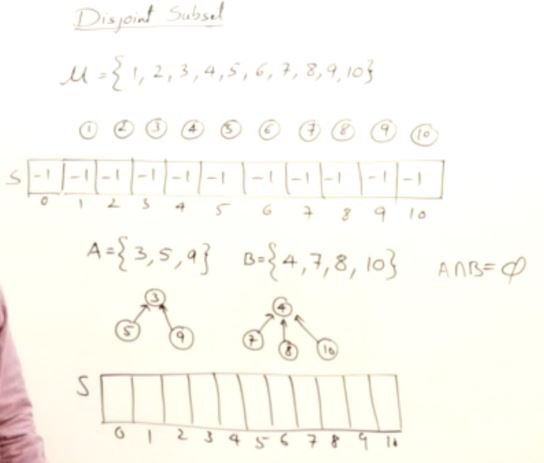 Disjoint Subset
μ = {1, 2, 3, 4, 5, 6, 7, 8, 9, 10}
1 2 3 4 5 6 7 8 9 10
S -1 -1 -1 -1 -1 -1 -1 -1 -1 -1 -1
0 1 2 3 4 5 6 7 8 9 10
A={3, 5, 9} B={4, 7, 8, 10} A∩B=φ
3 4
5 9 7 8 10
S
0 1 2 3 4 5 6 7 8 9 10